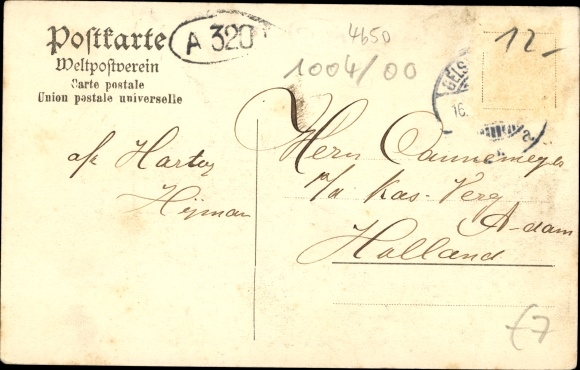 Postkarte
Weltpostverein
Carte postale
Union postale universelle
A 320
4650
1004/00
12,-
GELS
16.
Hern Cannemeyer
p/a Kas-Verg
A-dam
Holland
Hijman